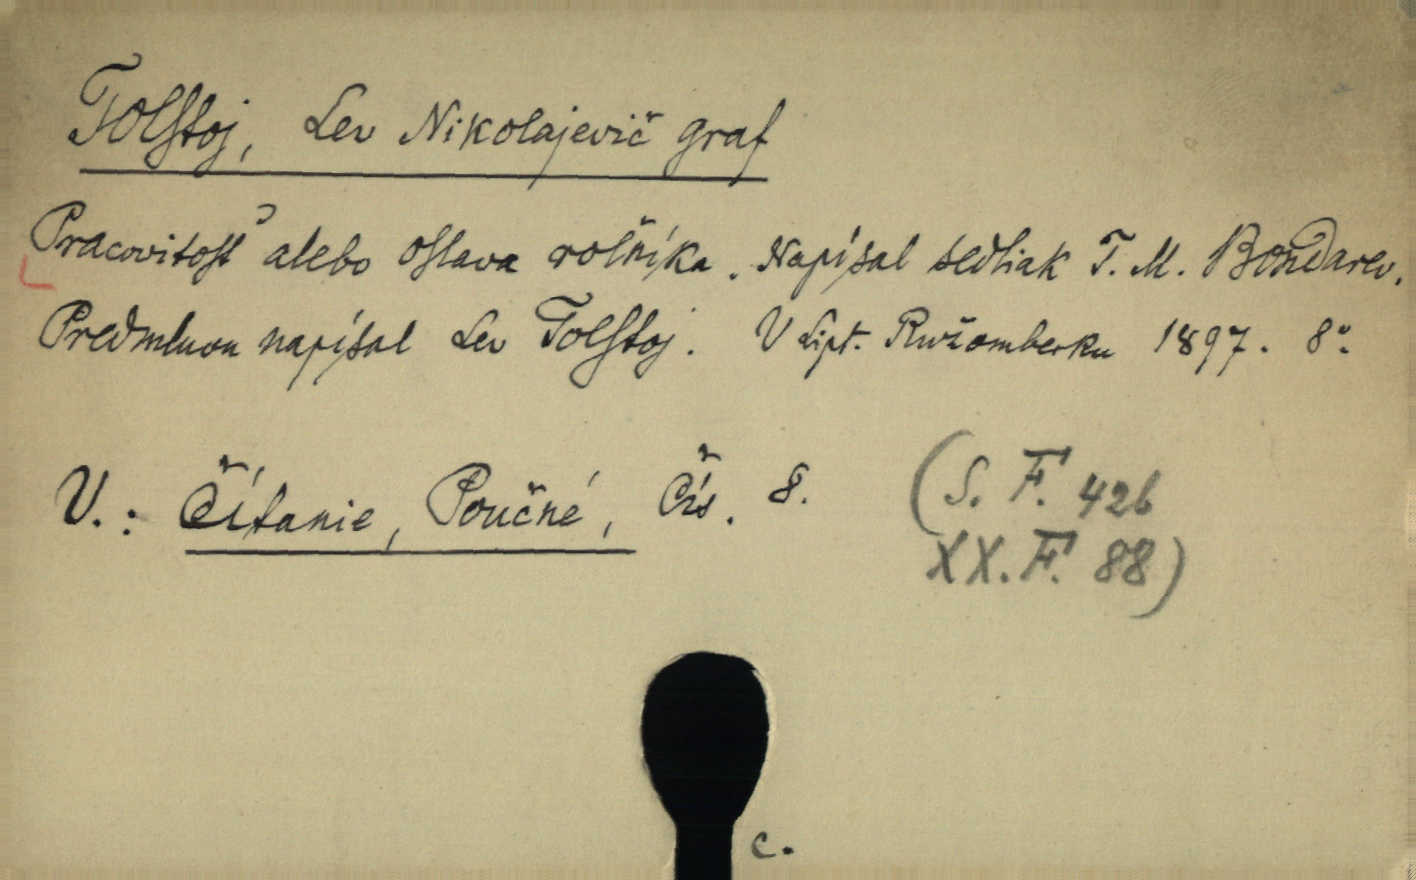 Tolstoj, Lev Nikolajevič graf
Pracovitosť alebo oslava roľníka. Napísal sedliak T. M. Bondarev.
Predmluvu napísal Lev Tolstoj. V Lipt. Ružomberku 1897. 8°.
V.: Čítanie, Poučné, Čís. 8.
(S. F. 426
XX. F. 88)
c.